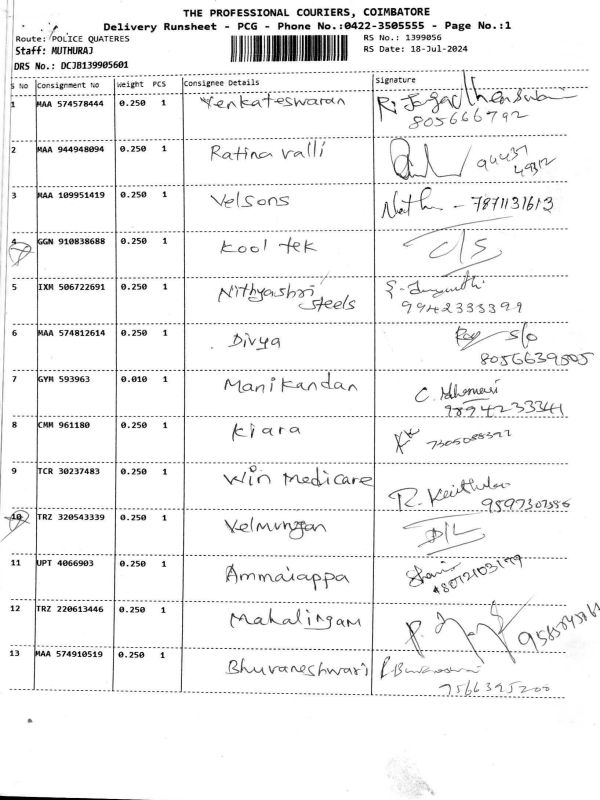 THE PROFESSIONAL COURIERS, COIMBATORE
Delivery Runsheet - PCG - Phone No.:0422-3505555 - Page No.:1
Route: POLICE QUATERES
RS No.: 1399056
Staff: MUTHURAJ
RS Date: 18-Jul-2024
DRS No.: DCJB139905601
S No Consignment No Weight PCS Consignee Details Signature
1 MAA 574578444 0.250 1 Venkateswaran
805666792
2 MAA 944948094 0.250 1 Ratina valli
94437
49312
3 MAA 109951419 0.250 1 Velsons - 7871131613
4 GGN 910838688 0.250 1 Kool tek C/S
5 IXM 506722691 0.250 1 Nithyashri
steels
9942333399
6 MAA 574812614 0.250 1 Divya S/o
8056639505
7 GYM 593963 0.010 1 Manikandan
9894233341
8 CMM 961180 0.250 1 Kiara
9 TCR 30237483 0.250 1 Win Medicare
10 TRZ 320543339 0.250 1 Velmurugan D/L
11 UPT 4066903 0.250 1 Ammaiappa
12 TRZ 220613446 0.250 1 Mahalingam
13 MAA 574910519 0.250 1 Bhuvaneshwari
7566395200